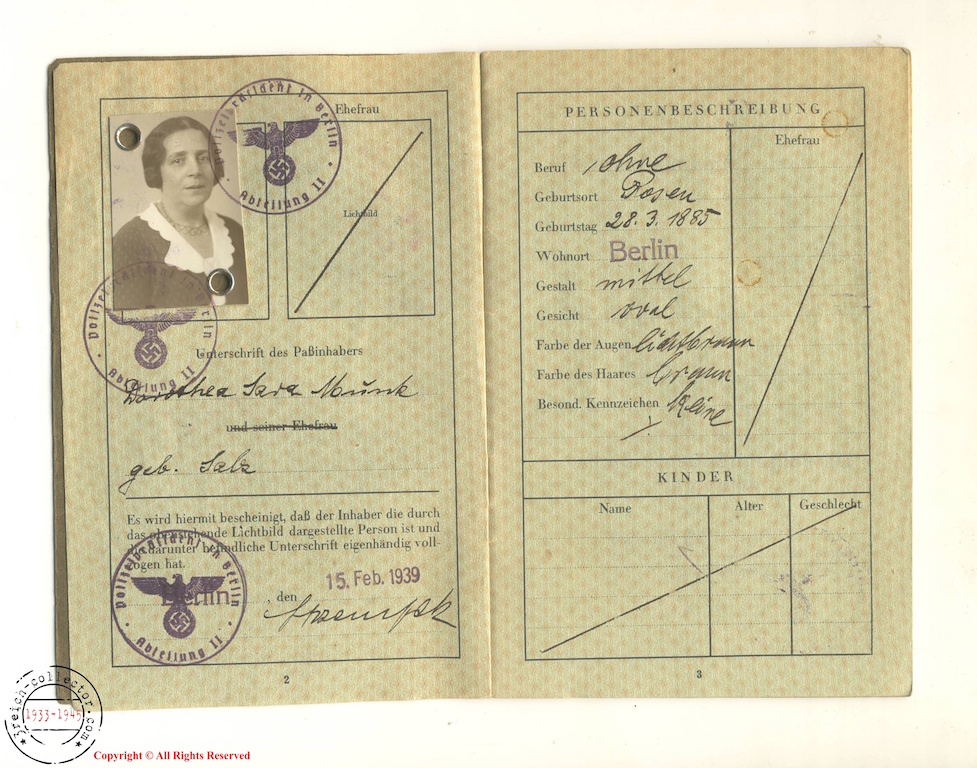 Ehefrau
Lichtbild
Polizeipräsident in Berlin
Abteilung II
Polizeipräsident in Berlin
Abteilung II
Unterschrift des Paßinhabers
Dorothea Sara Munk
und seiner Ehefrau
geb. Salz
Es wird hiermit bescheinigt, daß der Inhaber die durch
das obenstehende Lichtbild dargestellte Person ist und
die darunter befindliche Unterschrift eigenhändig voll-
zogen hat.
Berlin, den 15. Feb. 1939
Polizeipräsident in Berlin
Abteilung II
2
PERSONENBESCHREIBUNG
Ehefrau
Beruf ohne
Geburtsort Posen
Geburtstag 28.3.1885
Wohnort Berlin
Gestalt mittel
Gesicht oval
Farbe der Augen lichtbraun
Farbe des Haares braun
Besond. Kennzeichen Keine
KINDER
Name Alter Geschlecht
3
3reich-collector.com
1933-1945
Copyright © All Rights Reserved